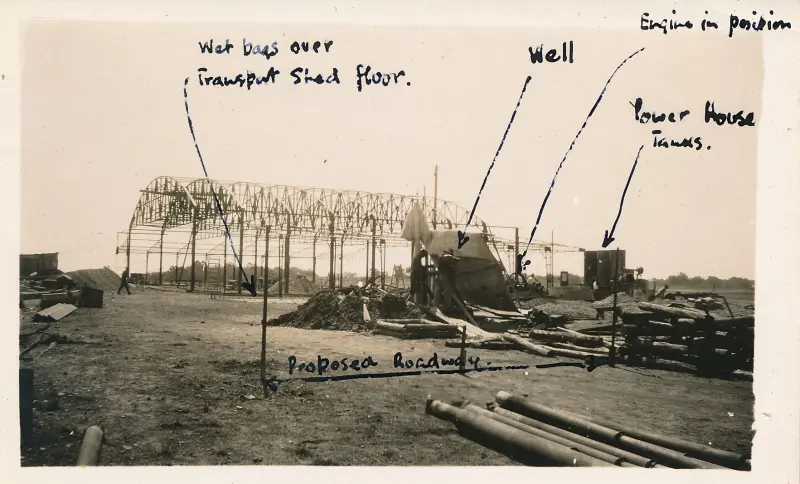 Engine in position
Wet bags over
Transport Shed floor.
Well
Power House
Tanks.
Proposed Roadway.